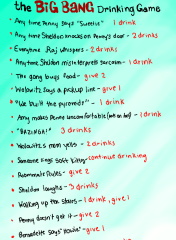 the BIG BANG Drinking Game
Any time Penny says "Sweetie" 1 drink
Any time Sheldon knocks on Penny's door - 2 drinks
Everytime Raj whispers - 2 drinks
Any time Sheldon misinterprets sarcasm - 1 drink
The gang buys food - give 2
Wolowitz says a pickup line - give 1
"We built the pyramids" - 1 drink
Amy makes Penny uncomfortable - 1 drink
"BAZINGA!" 3 drinks
Wolowitz's mom yells - 2 drinks
Someone sings Soft Kitty - continue drinking
Roommate Rules - give 2
Sheldon laughs - 3 drinks
Walking up the stairs - 1 drink, give 1
Penny doesn't get it - give 2
Bernadette says "Howie" - give 1